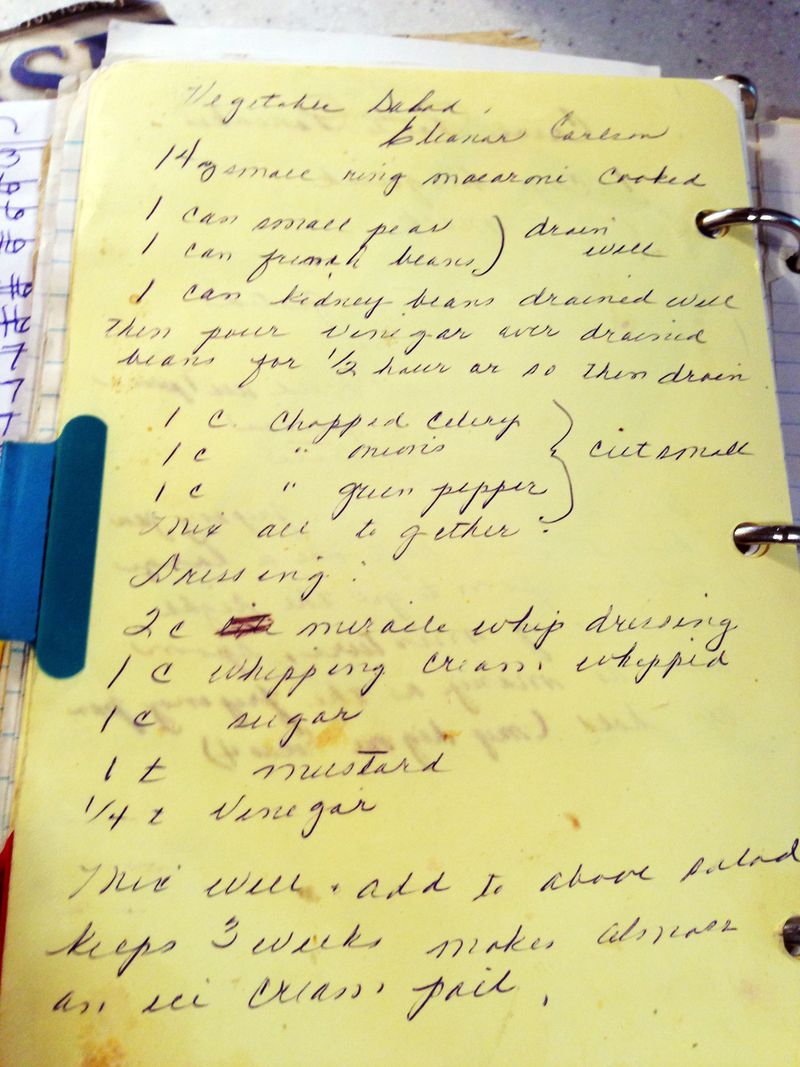 Vegetable Salad.
Eleanor Carlson
14 oz small ring macaroni cooked
1 can small peas } drain
1 can french beans } well
1 can kidney beans drained well
then pour vinegar over drained
beans for 1/2 hour or so then drain
1 c. chopped celery
1 c " onions } cut small
1 c " green pepper
Mix all to gether.
Dressing:
2 c miracle whip dressing
1 c whipping cream whipped
1 c sugar
1 t mustard
1/4 t vinegar
Mix well. add to above salad
keeps 3 weeks makes almost
an ice cream pail.